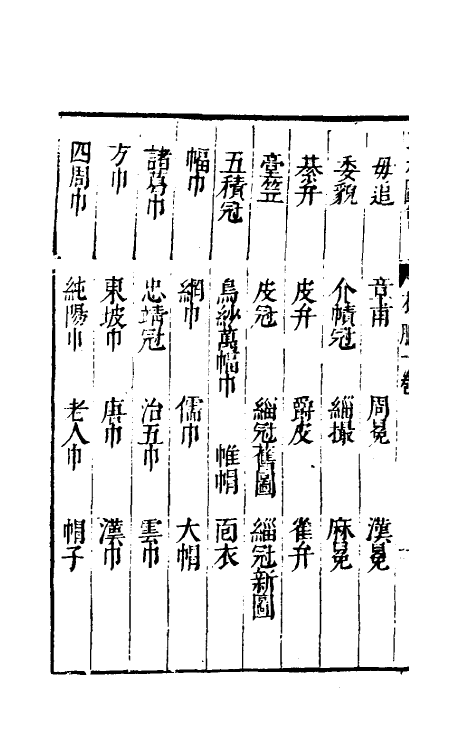 毋追　章甫　周冕　漢冕
委貌　介幘冠　緇撮　麻冕
綦弁　皮弁　爵皮　雀弁
臺笠　皮冠　緇冠舊圖　緇冠新圖
五積冠　烏紗萬幅巾　帷帽　靣衣
幅巾　網巾　儒巾　大帽
諸葛巾　忠靖冠　治五巾　雲巾
方巾　東坡巾　唐巾　漢巾
四周巾　純陽巾　老人巾　帽子